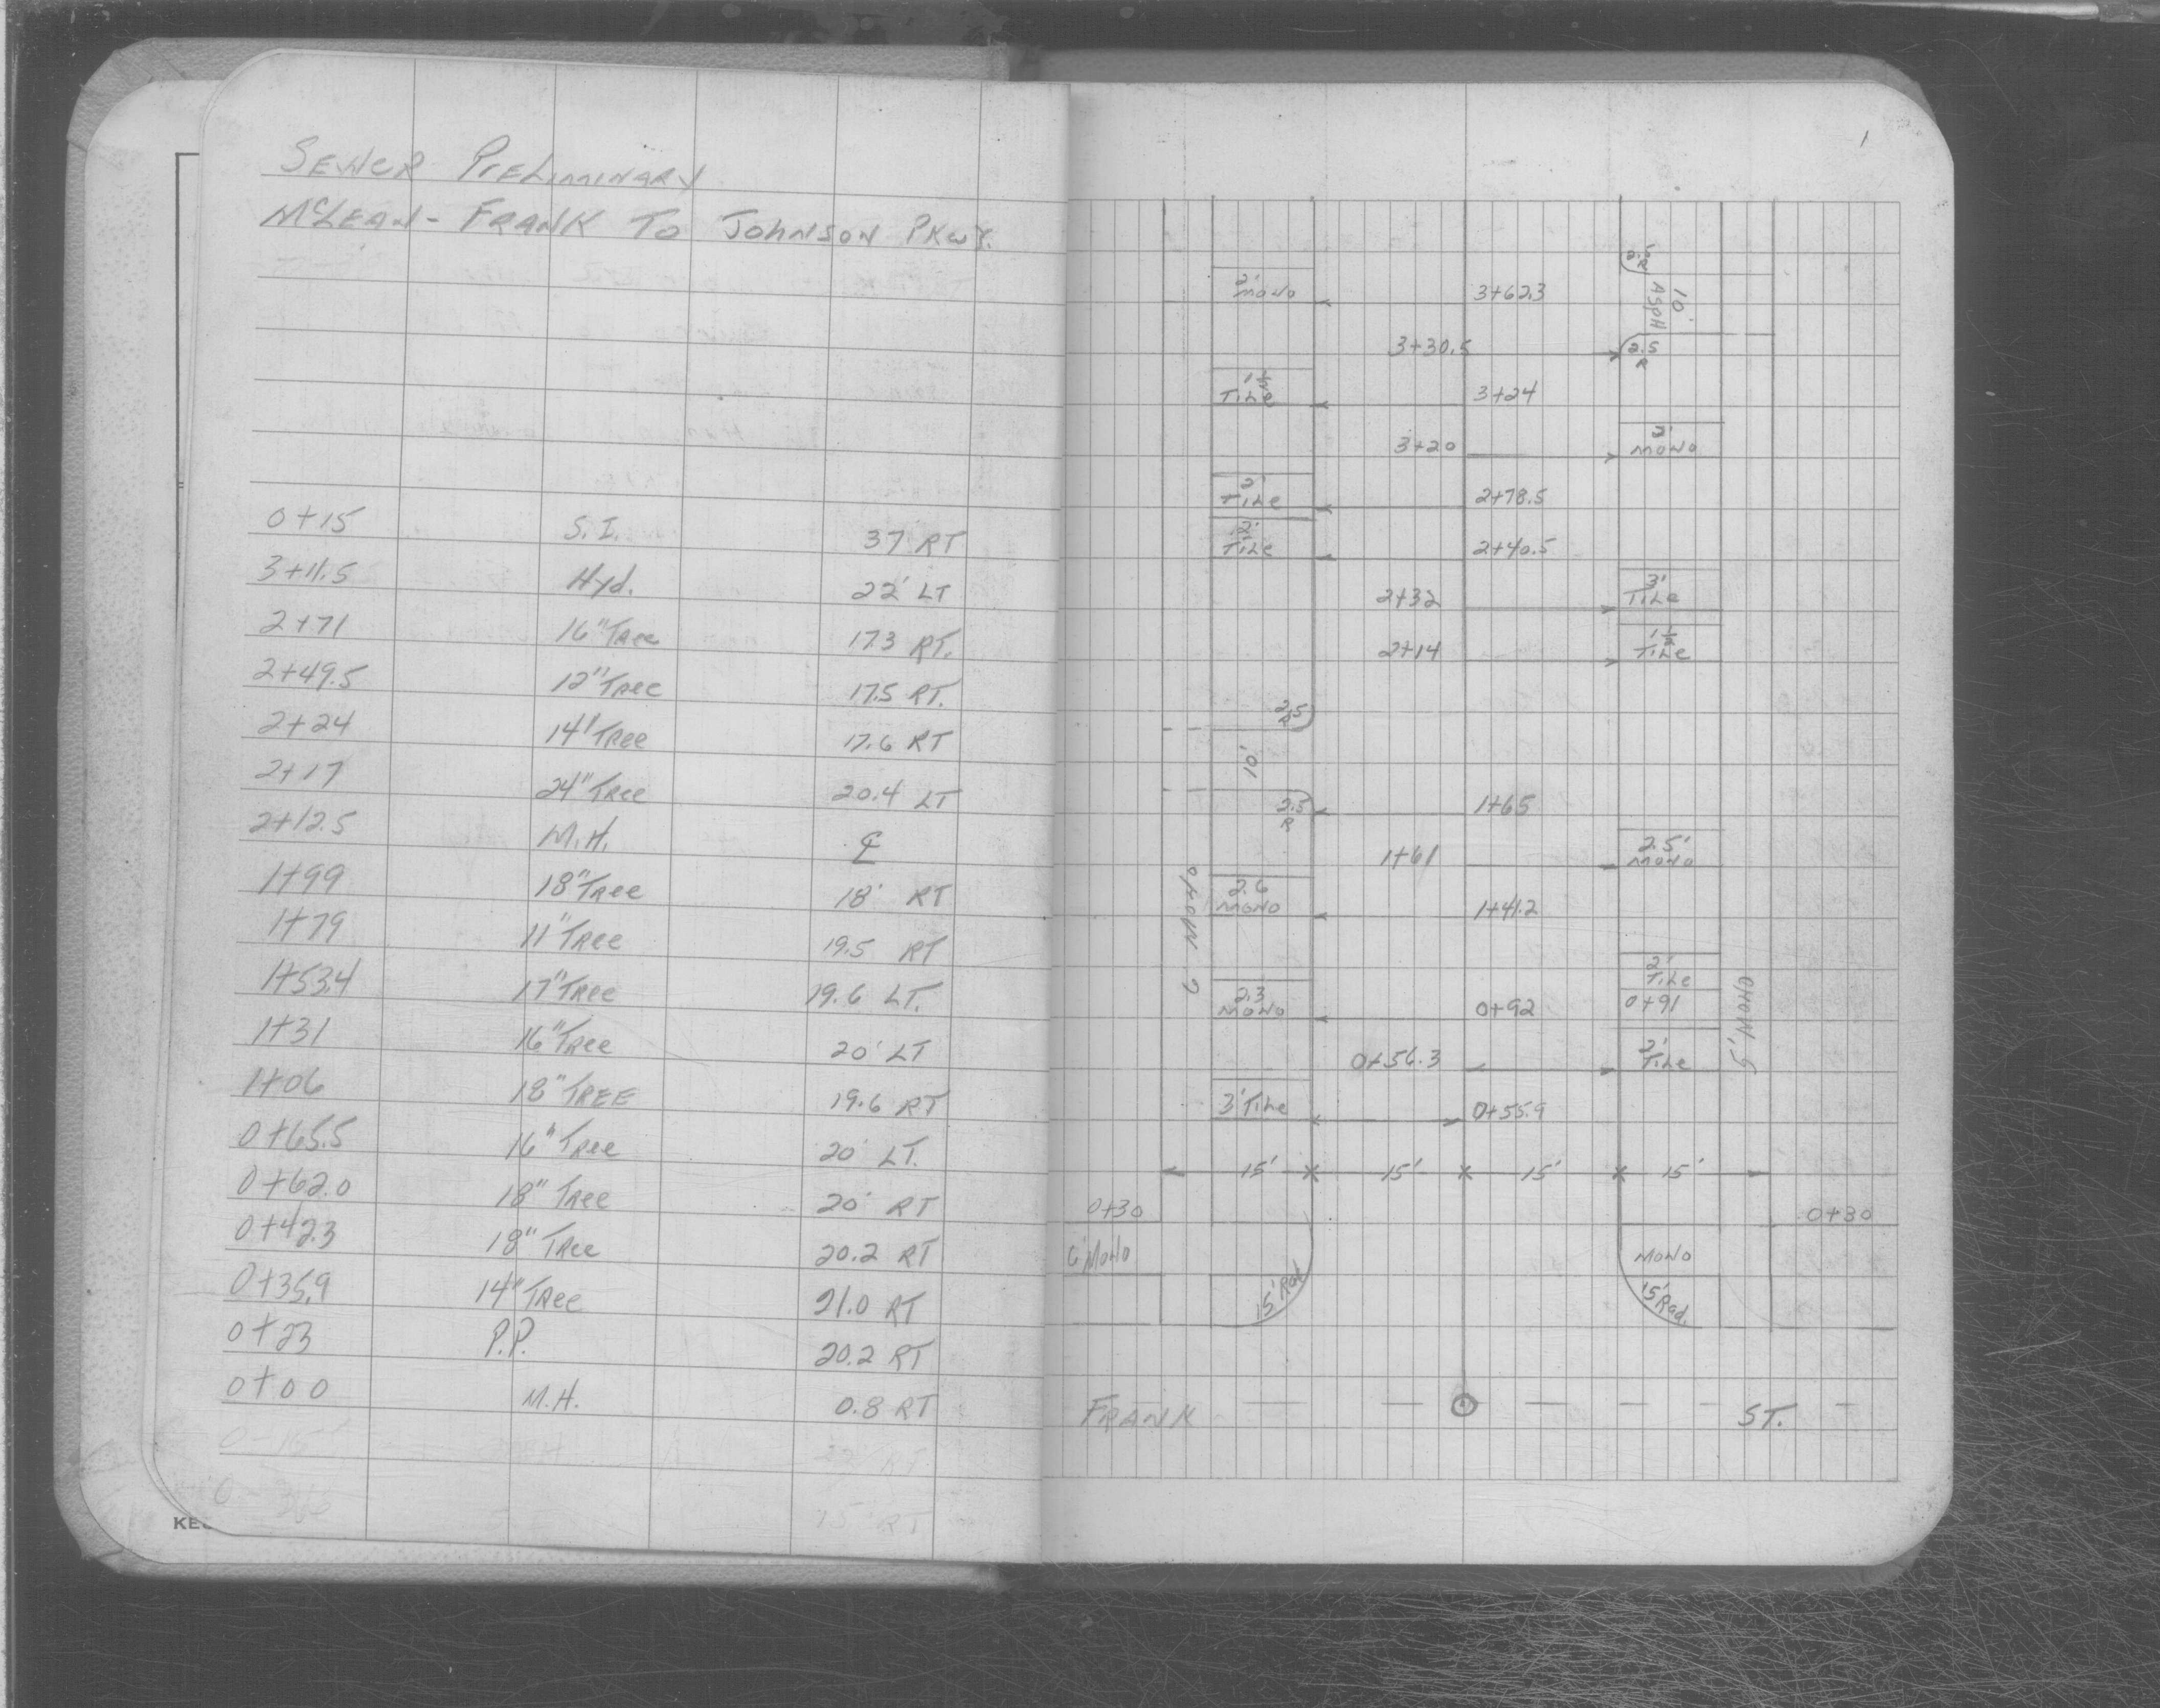 SEWER PRELIMINARY
McLEAN - FRANK TO JOHNSON PKWY.
0+15 S.I. 37 RT
3+11.5 Hyd. 22' LT
2+71 16" Tree 17.3 RT.
2+49.5 12" Tree 17.5 RT.
2+24 14" Tree 17.6 RT
2+17 24" Tree 20.4 LT
2+12.5 M.H. ℄
1+99 18" Tree 18' RT
1+79 11" Tree 19.5 RT
1+53.4 17" Tree 19.6 LT.
1+31 16" Tree 20' LT
1+06 18" TREE 19.6 RT
0+65.5 16" Tree 20' LT.
0+62.0 18" Tree 20' RT
0+42.3 18" Tree 20.2 RT
0+35.9 14" Tree 21.0 RT
0+23 P.P. 20.2 RT
0+00 M.H. 0.8 RT
15 RT
1
2' MONO 3+62.3 10' ASPH
3+30.5 2.5 R
1½ TILE 3+24
3+20 2' MONO
2' TILE 2+78.5
2' TILE 2+40.5
2+32 3' TILE
2+14 1½ TILE
2.5 R
10'
2.5 R 1+65
1+61 2.5' MONO
2.6 MONO 1+41.2
2' TILE
2.3 MONO 0+92 0+91
0+56.3 2' TILE
3' TILE 0+55.9
15' 15' 15' 15'
0+30 0+30
6' MONO MONO
15' Rad. 15' Rad.
FRANK ST.